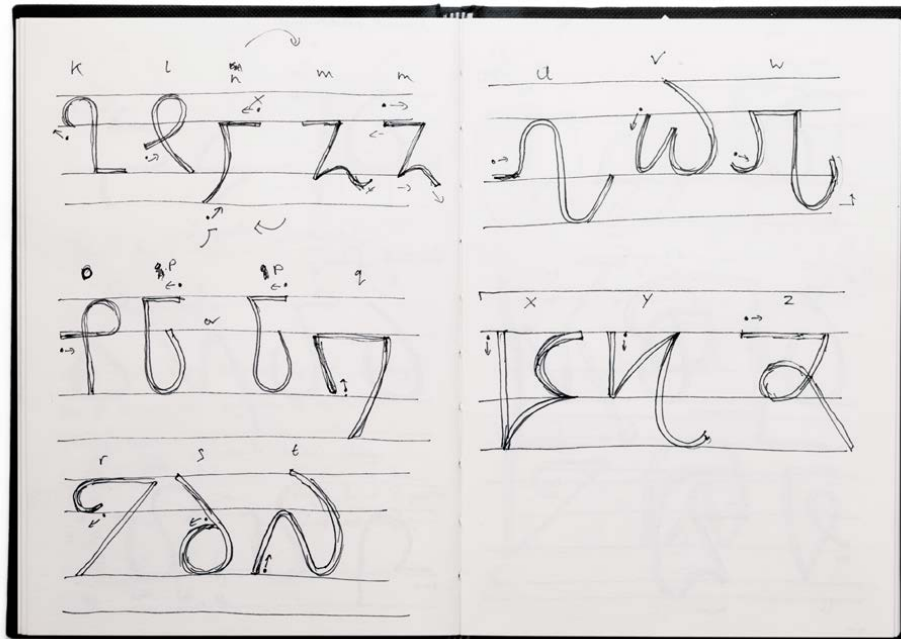 k l n m m
o p or p q
r s t
u v w
x y z